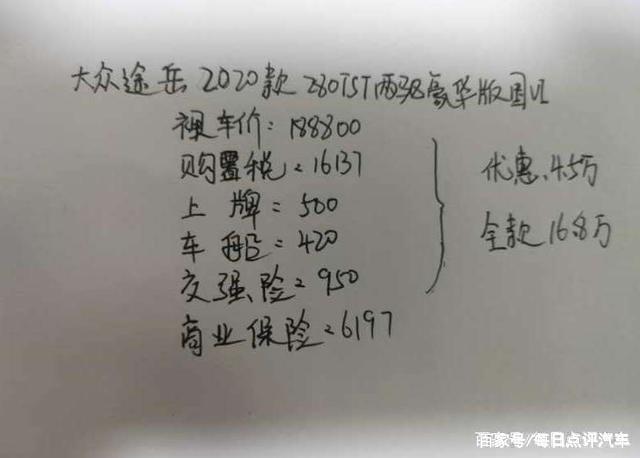 大众途岳 2020款 280TSI两驱豪华版国VI
裸车价:188800
购置税:16137
上牌:500
车船:420
交强险:950
商业保险:6197
优惠.4.5万
全款16.8万
商家号/每日点评汽车